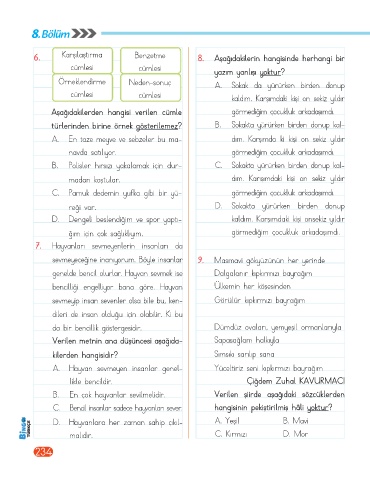 8. Bölüm
6.
Karşılaştırma cümlesi
Benzetme cümlesi
Örneklendirme cümlesi
Neden-sonuç cümlesi
Aşağıdakilerden hangisi verilen cümle
türlerinden birine örnek gösterilemez?
A. En taze meyve ve sebzeler bu ma-
navda satılıyor.
B. Polisler hırsızı yakalamak için dur-
madan koştular.
C. Pamuk dedemin yufka gibi bir yü-
reği var.
D. Dengeli beslendiğim ve spor yaptı-
ğım için çok sağlıklıyım.
7. Hayvanları sevmeyenlerin insanları da
sevmeyeceğine inanıyorum. Böyle insanlar
genelde bencil olurlar. Hayvan sevmek ise
bencilliği engelliyor bana göre. Hayvan
sevmeyip insan sevenler olsa bile bu, ken-
dileri de insan olduğu için olabilir. Ki bu
da bir bencillik göstergesidir.
Verilen metnin ana düşüncesi aşağıda-
kilerden hangisidir?
A. Hayvan sevmeyen insanlar genel-
likle bencildir.
B. En çok hayvanlar sevilmelidir.
C. Bencil insanlar sadece hayvanları sever.
D. Hayvanlara her zaman sahip çıkıl-
malıdır.
8. Aşağıdakilerin hangisinde herhangi bir
yazım yanlışı yoktur?
A. Sokak da yürürken birden donup
kaldım. Karşımdaki kişi on sekiz yıldır
görmediğim çocukluk arkadaşımdı.
B. Sokakta yürürken birden donup kal-
dım. Karşımda ki kişi on sekiz yıldır
görmediğim çocukluk arkadaşımdı.
C. Sokakta yürürken birden donup kal-
dım. Karşımdaki kişi on sekiz yıldır
görmediğim çocukluk arkadaşımdı.
D. Sokakta yürürken birden donup
kaldım. Karşımdaki kişi onsekiz yıldır
görmediğim çocukluk arkadaşımdı.
9. Masmavi gökyüzünün her yerinde
Dalgalanır kıpkırmızı bayrağım
Ülkemin her köşesinden
Görülür kıpkırmızı bayrağım
Dümdüz ovaları, yemyeşil ormanlarıyla
Sapasağlam halkıyla
Sımsıkı sarılıp sana
Yüceltiriz seni kıpkırmızı bayrağım
Çiğdem Zuhal KAVURMACI
Verilen şiirde aşağıdaki sözcüklerden
hangisinin pekiştirilmiş hâli yoktur?
A. Yeşil B. Mavi
C. Kırmızı D. Mor
234